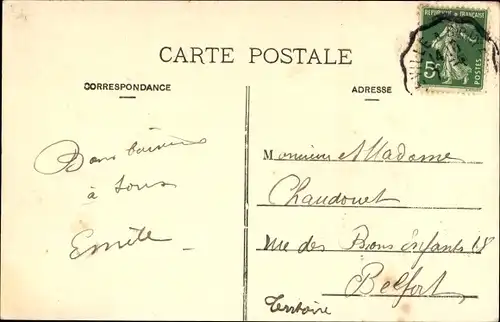 CARTE POSTALE
CORRESPONDANCE
ADRESSE
RÉPUBLIQUE FRANÇAISE
5c
POSTES
VILLE
Bons baisers
à tous
Emile
Monsieur et Madame
Chaudouet
rue des Bons Enfants 18
Belfort
Territoire